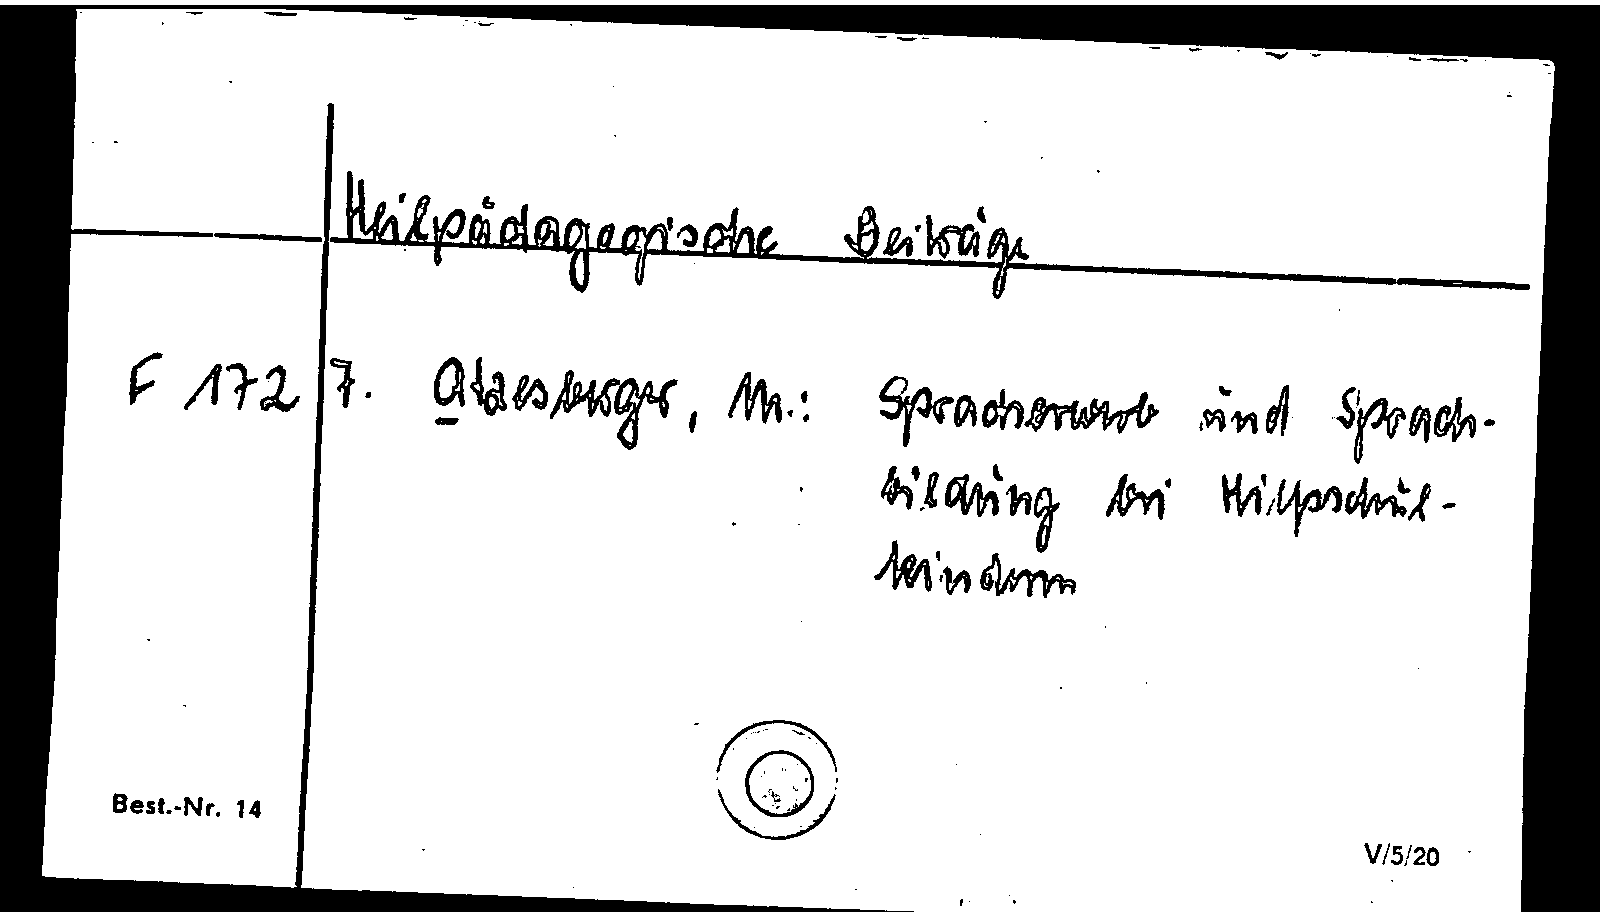 Heilpädagogische Beiträge
F 172 7. Atzesberger, M.: Spracherwerb und Sprach-
bildung bei Hilfsschul-
kindern
Best.-Nr. 14
V/5/20